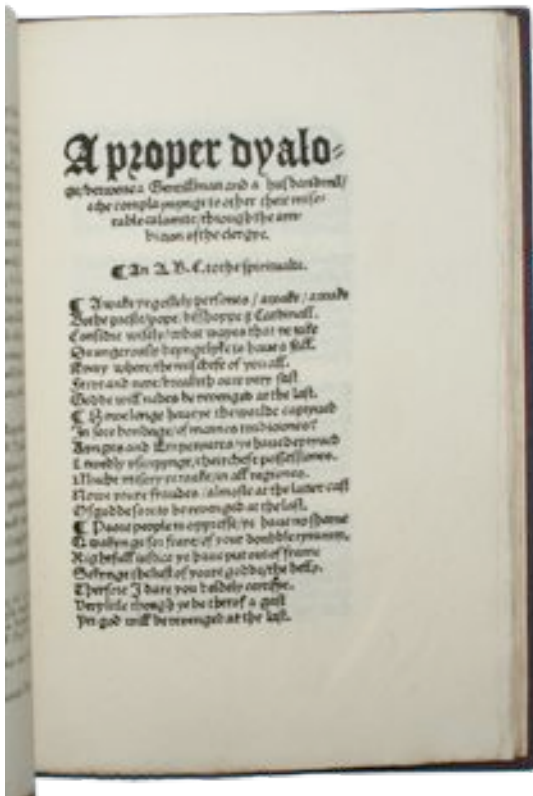 A proper dyalo⸗
ge/betwene a Gentillman and a husbandmā/
eche complaynynge to other their mise⸗
rable calamite/through the am⸗
bicion of the clergye.
¶ An A. B. C. to the spiritualte.
¶ Awake ye gostely persones / awake / awake
Bothe preste/pope/bisshoppe & Cardinall.
Considre wisely/what wayes that ye take
Daungerously beynge lyke to haue a fall.
Every where/the mischefe of you all.
Ferre and nere/breaketh oute very fast
Godde will nedes be revenged at the last.
¶ Howe longe haue ye the worlde captyued
In sore bondage/of mennes tradiciones?
Kynges and Emperoures/ye haue depryued
Lewedly vsurpynge/their chefe possessiones.
Muche misery ye make/in all regiones.
Nowe youre fraudes/almoste at the latter cast
Of godde sore to be revenged at the last.
¶ Poore people to oppresse/ye haue no shame
Qwakynge for feare/of your doubble tyranny.
Rightfull iustice ye haue put out of frame
Sekynge the lust of youre godde/the belly.
Therfore I dare you boldely certifye.
Very litle though ye be therof a gast
Yet god will be revenged at the last.